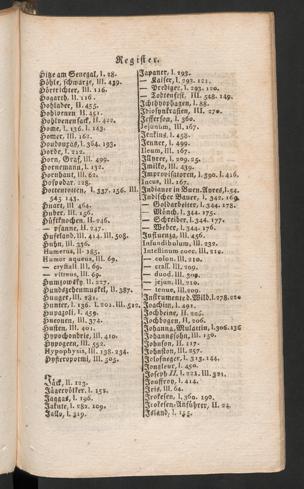 Register.
Hitze am Senegal, I. 28.
Höhle, schwarze, III. 439.
Hörtrichter, III. 116.
Hogarth, II. 116.
Hohläder, II. 455.
Hohlvenen, II. 451.
Hohlvenensack, II. 422.
Home, I. 136.
Homer, III. 162.
Houdouyas, I. 364.
Horde, I. 212.
Horn, Graf, III. 499.
Hornemann, I. 132.
Hornhaut, III. 62.
Hospodar, 228.
Hottentotten, I. 337. 156. III.
543. 143.
Huart, III. 464.
Huber, III. 156.
Hüftknochen, II. 246.
— pfanne, II. 247.
Hufeland, III. 414. III. 508.
Huhn, III. 336.
Humerus, II. 285.
Humor aqueus, III. 69.
— crystall. III. 69.
— vitreus, III. 69.
Humzowsky, II. 227.
Hundszehenmuskel, II. 387.
Hunger, III. 281.
Hunter, I. 136. I. 201. III. 512.
Hupazoli, I. 459.
Huronen, III. 374.
Husten, III. 401.
Hypochondrie, III. 410.
Hypogeen, III. 552.
Hypophysis, III. 138. 234.
Hysteropotmi, III. 505.
J.
Jäck, II. 123.
Jägervölker, I. 152.
Jaggas, I. 196.
Jakute, I. 282. 109.
Jallo, I. 319.
Japaner, I. 193.
— Kaiser, I. 293. 121.
— Prediger, I. 293. 120.
— Todtenfest, III. 548. 149.
Ichthyophagen, I. 88.
Idiosynkrasien, III. 270.
Jefferson, I. 360.
Jejunium, III. 167.
Jenkins, I. 458.
Jenner, I. 499.
Ileum, III. 167.
Illyrier, I. 209. 25.
Imilko, III. 439.
Improvisatoren, I. 390. I. 416.
Incus, III. 167.
Indianer in Buen. Ayres, I. 54.
Indischer Bauer, I. 342. 169.
— Goldarbeiter, I. 344. 178.
— Mönch, I. 344. 175.
— Schreiber, I. 344. 177.
— Weber, I. 344. 176.
Influenza, III. 456.
Infundibulum, III. 232.
Intestinum coec. III. 210.
— colon. III. 210.
— crass. III. 209.
— duod. III. 209.
— jejun. III. 210.
— tenue, III. 209.
Instrumente d. Wild. I. 278. 220
Joachim, I. 491.
Jochbeine, II. 225.
Jochbogen, II. 206.
Johanna, Mulattin, I. 306. 136
Johannssohn, III. 150.
Johnson, II. 117.
Johnston, III. 257.
Jongleur, I. 450.
Joseph II. I. 221. III. 321.
Jouffroy, I. 414.
Iris, III. 64.
Irokesen, I. 360. 190.
Irokesen-Anführer, II. 24.
Island, I. 155.